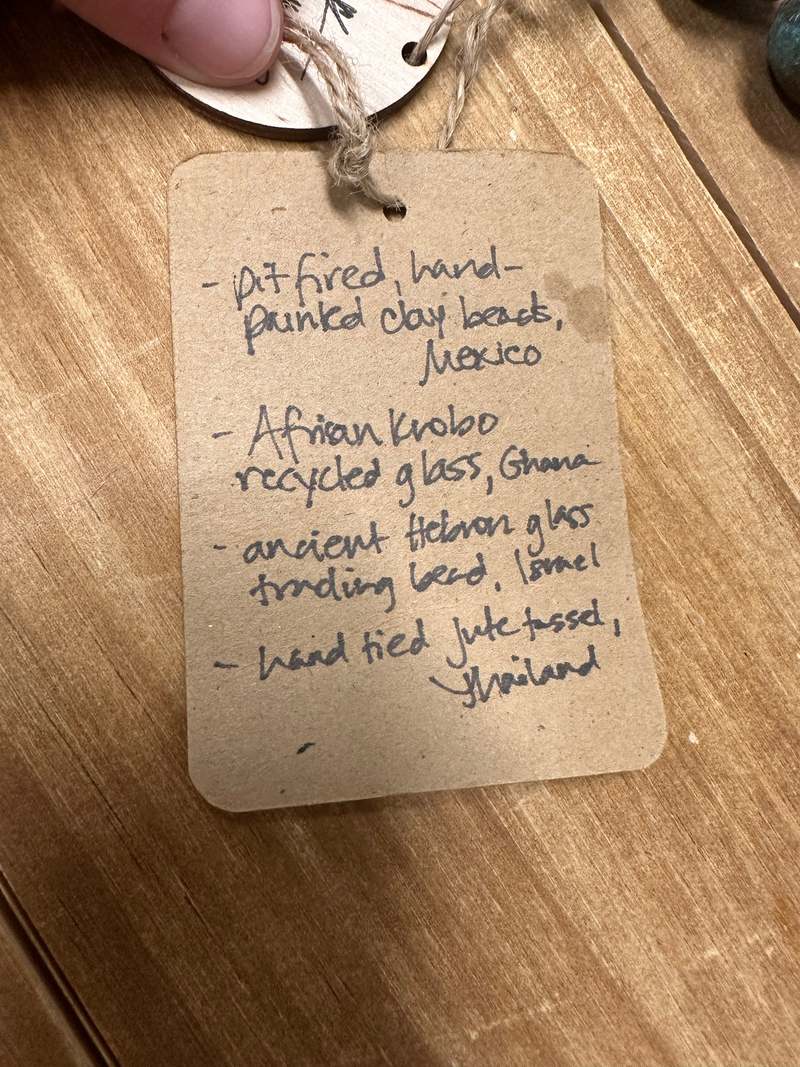 - pit fired, hand-
painted clay beads,
Mexico
- African Krobo
recycled glass, Ghana
- ancient Hebron glass
trading bead, Israel
- hand tied jute tassel,
Thailand